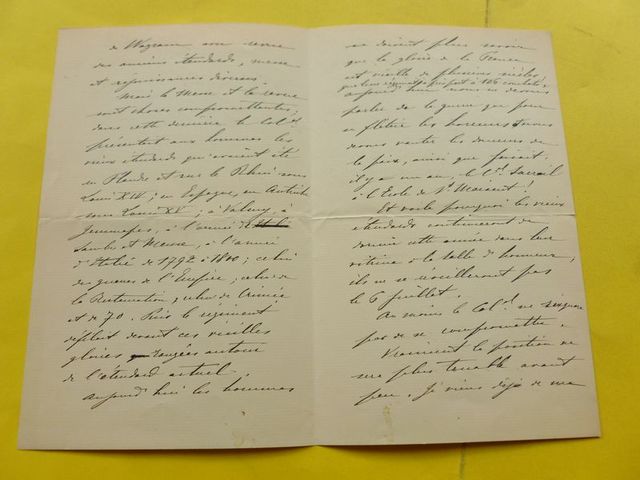 de Wagram une revue
des anciens étendards, messe
et réjouissances diverses.
Mais la Messe et la revue
sont choses compromettantes,
dans cette dernière le Col.el
présentait aux hommes les
vieux étendards qui avaient été
en Flandre et sur le Rhin sous
Louis XIV ; en Espagne, en Autriche
sous Louis XV ; à Valmy, à
Jemmapes, à l'armée de
Sambre et Meuse, à l'armée
d'Italie de 1792 à 1800 ; celui
des guerres de l'Empire ; celui de
la Restauration ; celui de Crimée
et de 70. Puis le régiment
défilait devant ces vieilles
gloires rangées autour
de l'étendard actuel.
Aujourd'hui les hommes
ne doivent plus savoir
que la gloire de la France
est vieille de plusieurs siècles,
que leur régiment a pris part à 126 combats ;
aujourd'hui nous ne devons
parler de la guerre que pour
en flétrir les horreurs & nous
devons vanter les douceurs de
la paix, ainsi que faisait,
il y a un an, le C.t Sarrail
à l'Ecole de St Maixent !
Et voilà pourquoi les vieux
étendards continueront de
dormir cette année dans leur
vitrine à la salle d'honneur,
ils ne se
le 6 juillet.
Au moins le Col.el ne risquera
pas de se compromettre.
Vraiment la position ne
sera plus tenable avant
peu. Je viens déjà de me